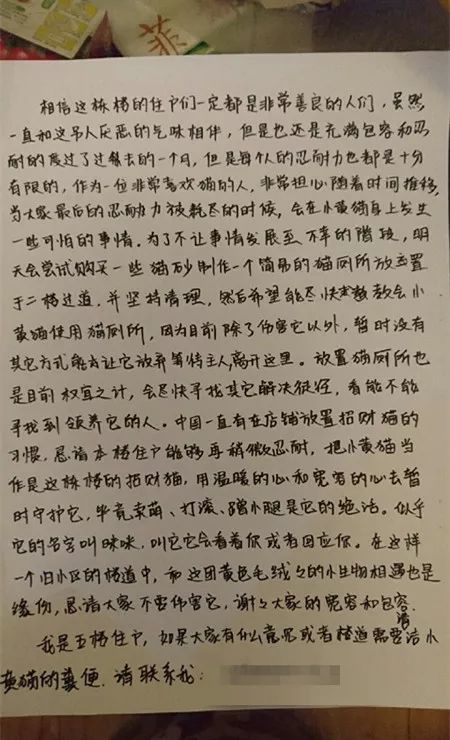 菲
相信这栋楼的住户们一定都是非常善良的人们，虽然
一直和这吊人反恶的气味相伴，但是也还是充满包容和忍
耐的度过了过去的一个月，但是每个人的忍耐力也都是十分
有限的，作为一位非常喜欢猫的人，非常担心随着时间推移，
当大家最后的忍耐力被耗尽的时候，会在小黄猫身上发生
一些可怕的事情。为了不让事情发展至不幸的阶段，明
天会尝试购买一些猫砂制作一个简易的猫厕所放置
于二楼过道，并坚持清理，然后希望能尽快教会小
黄猫使用猫厕所，因为目前除了伤害它以外，暂时没有
其它方式能去让它放弃等待主人，离开这里。放置猫厕所也
是目前权宜之计，会尽快寻找其它解决途径，看能不能
寻找到领养它的人。中国一直有在店铺放置招财猫的
习惯，恳请本楼住户能够再稍微忍耐，把小黄猫当
作是这栋楼的招财猫，用温暖的心和宽容的心去暂
时守护它，毕竟卖萌、打滚、蹭小腿是它的绝活。似乎
它的名字叫咪咪，叫它它会看着你或者回应你。在这样
一个旧小区的楼道中，和这团黄色毛绒々的小生物相遇也是
缘份，恳请大家不要伤害它，谢々大家的宽容和包容.
我是五楼住户，如果大家有什么意见或者楼道需要清洁小
黄猫的粪便，请联系我：